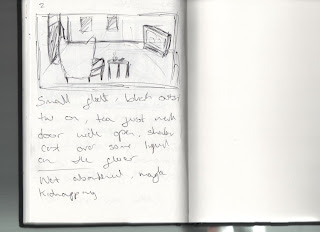 2
Small flat,
on, tea just made
door wide open, shadow
cast over some liquid
on the floor
abandoned, maybe
kidnapping